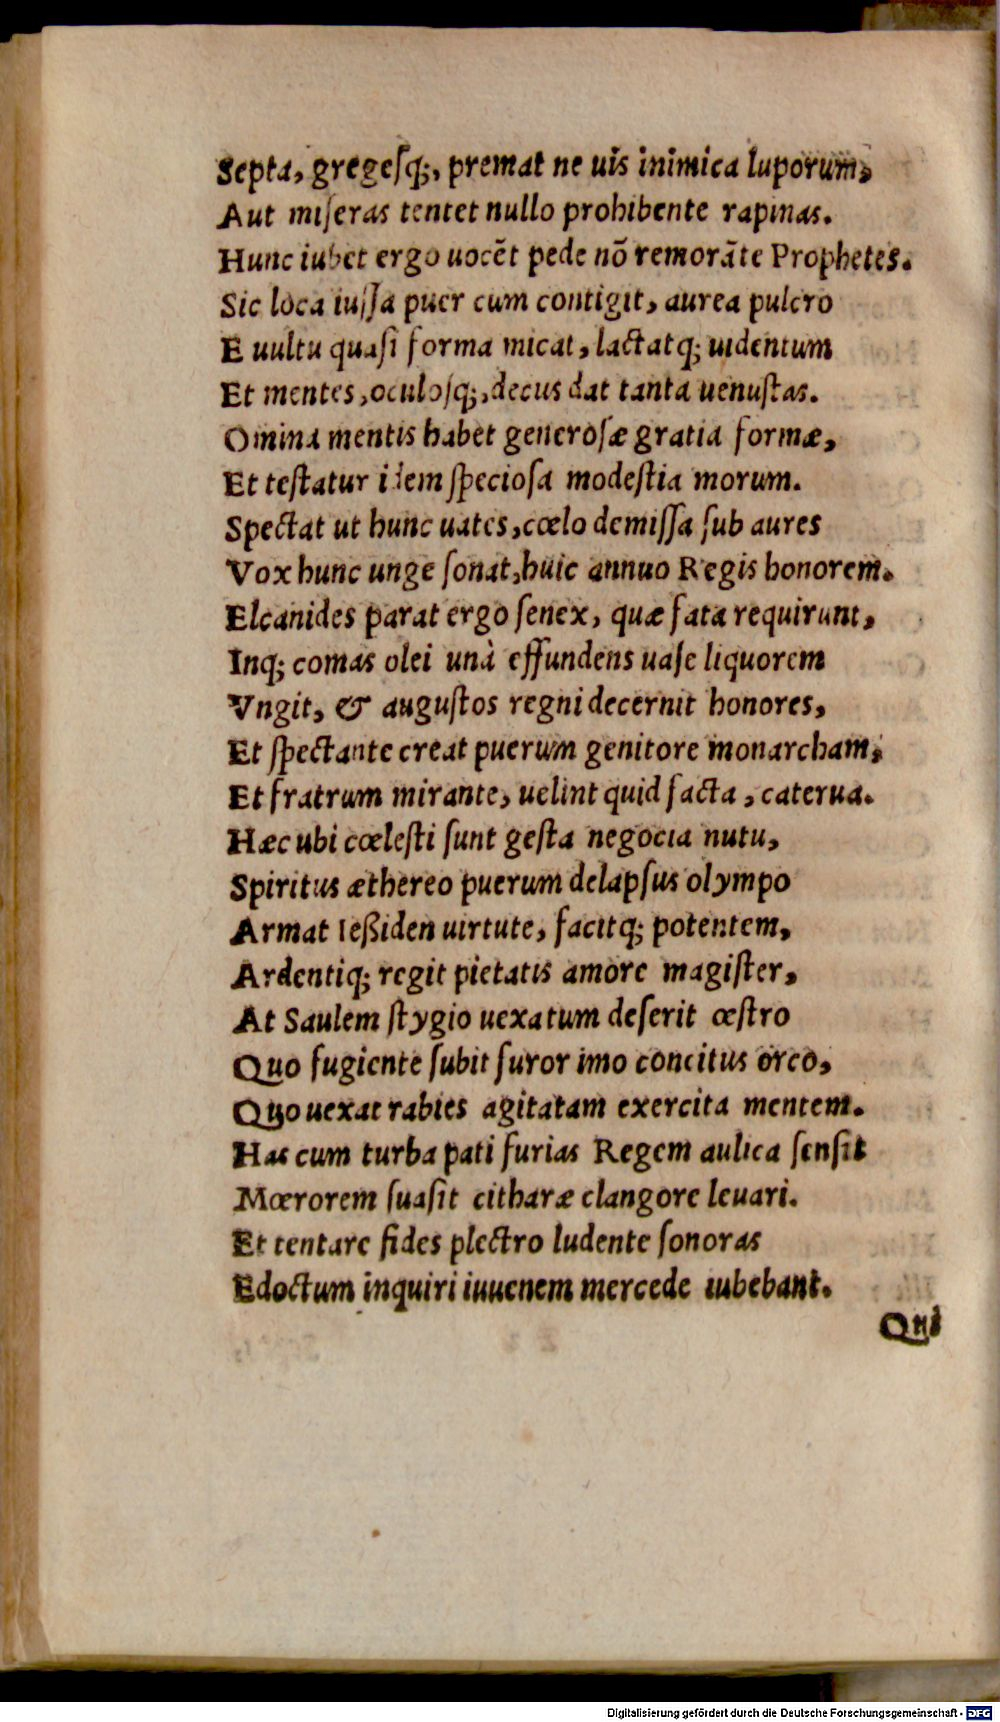 Septa, gregesq;, premat ne uis inimica luporum,
Aut miseras tentet nullo prohibente rapinas.
Hunc iubet ergo uocēt pede nō remorāte Prophetes.
Sic loca iussa puer cum contigit, aurea pulcro
E uultu quasi forma micat, lactatq; uidentum
Et mentes, oculosq;, decus dat tanta uenustas.
Omina mentis habet generosæ gratia formæ,
Et testatur idem speciosa modestia morum.
Spectat ut hunc uates, cœlo demissa sub aures
Vox hunc unge sonat, huic annuo Regis honorem.
Elcanides parat ergo senex, quæ fata requirunt,
Inq; comas olei unà effundens uase liquorem
Vngit, & augustos regni decernit honores,
Et spectante creat puerum genitore monarcham,
Et fratrum mirante, uelint quid facta, caterua.
Hæc ubi cœlesti sunt gesta negocia nutu,
Spiritus æthereo puerum delapsus olympo
Armat Ießiden uirtute, facitq; potentem,
Ardentiq; regit pietatis amore magister,
At Saulem stygio uexatum deserit œstro
Quo fugiente subit furor imo concitus orco,
Quo uexat rabies agitatam exercita mentem.
Has cum turba pati furias Regem aulica sensit
Mœrorem suasit citharæ clangore leuari.
Et tentare fides plectro ludente sonoras
Edoctum inquiri iuuenem mercede iubebant.
Qui
Digitalisierung gefördert durch die Deutsche Forschungsgemeinschaft - DFG